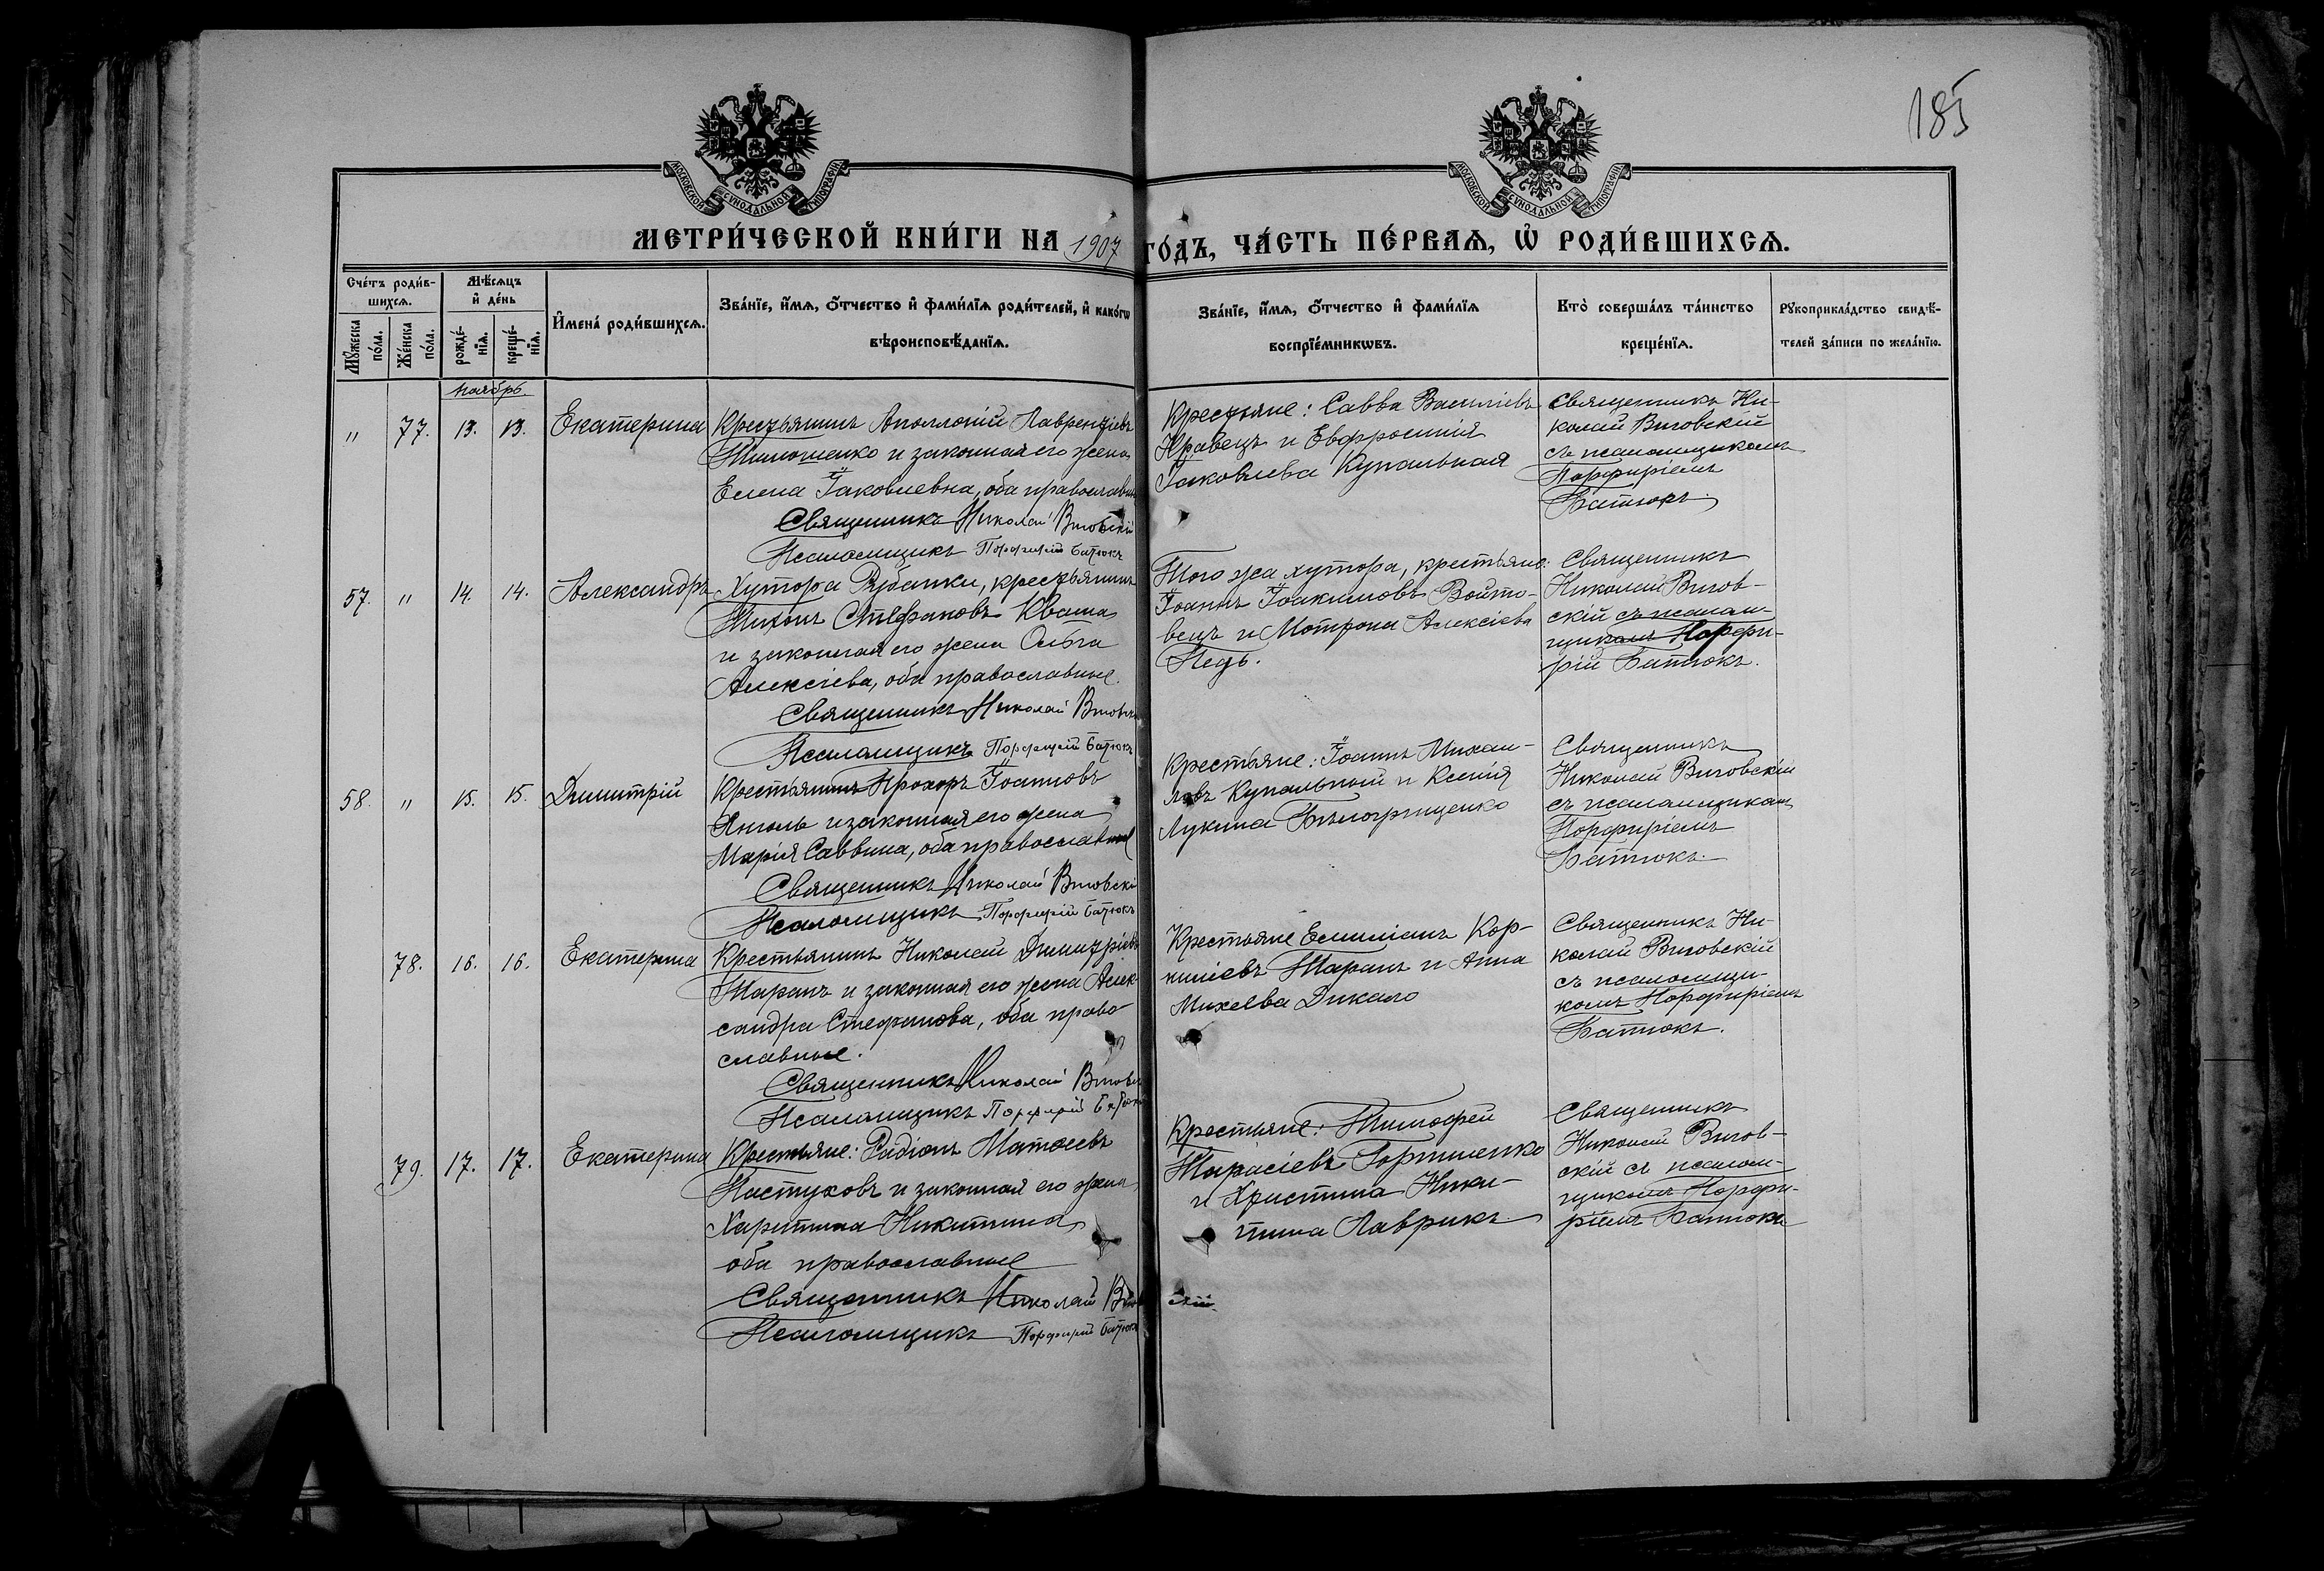 185
МОСКОВСКОЙ СУНОДАЛЬНОЙ ТИПОГРАФІИ
МОСКОВСКОЙ СУНОДАЛЬНОЙ ТИПОГРАФІИ
МЕТРИ́ЧЕСКОЙ КНИ́ГИ НА 1907 ГО́ДЪ, ЧА́СТЬ ПЕ́РВАѦ, Ѡ҆ РОДИ́ВШИХСѦ.
Сче́тъ роди́в-
шихсѧ.
Мꙋ́жеска по́ла.
Же́нска по́ла.
Мѣ́сѧцъ и҆ де́нь
рожде́-
нїѧ.
креще́-
нїѧ.
И҆мена̀ роди́вшихсѧ.
Зва́нїе, и҆́мѧ, ѻ҆́тчество и҆ фами́лїѧ роди́телей, и҆ како́гѡ
вѣроисповѣ́данїѧ.
Зва́нїе, и҆́мѧ, ѻ҆́тчество и҆ фами́лїѧ
воспрїе́мникѡвъ.
Кто̀ соверша́лъ та́инство
креще́нїѧ.
Рꙋкоприкла́дство свидѣ́-
телей за́писи по жела́нїю.
Ноябрь.
" 77. 13. 13. Екатерина
Крестьянинъ Аполлоній Лаврентіевъ
Тимошенко и законная его жена
Елена Іаковлевна, оба православн
Священникъ Николай Виговскій
Псаломщикъ Порфирій Батюкъ
Крестьяне: Савва Василіевъ
Кравецъ и Евфросинія
Іаковлева Купальная
Священникъ Ни-
колай Виговскій
съ псаломщикомъ
Порфиріемъ
Батюкъ.
57. " 14. 14. Александръ
Хутора Рубанки, крестьянинъ
Тихонъ Стефановъ Кваша
и законная его жена Ольга
Алексіева, оба православные.
Священникъ Николай Виговск
Псаломщикъ Порфирій Батюкъ
Того жа хутора, крестьяне:
Іоаннъ Іоакимовъ Войто-
вецъ и Мотрона Алексіева
Недь.
Священникъ
Николай Вигов-
скій съ псалом-
щикомъ Порфи-
рій Батюкъ.
58. " 15. 15. Димитрій
Крестьянинъ Прохоръ Іоанновъ
Янголь и законная его жена
Марія Саввина, оба православные
Священникъ Николай Виговскі
Псаломщикъ Порфирій Батюкъ
Крестьяне: Іоаннъ Михаи-
ловъ Купальный и Ксенія
Лукина Бѣлогрищенко
Священникъ
Николай Виговскій
съ псаломщикомъ
Порфиріемъ
Батюкъ.
78. 16. 16. Екатерина
Крестьянинъ Николай Димитріевъ
Таранъ и законная его жена Алек-
сандра Стефанова, оба право
славные.
Священникъ Николай Виговск
Псаломщикъ Порфирій Батюкъ
Крестьяне Емиліанъ Кор-
ниліевъ Таранъ и Анна
Михеева Дикало
Священникъ Ни-
колай Виговскій
съ псаломщи-
комъ Порфиріемъ
Батюкъ.
79. 17. 17. Екатерина
Крестьяне: Радіонъ Матѳеевъ
Пастуховъ и законная его жена
Харитина Никитина,
оба православные
Священникъ Николай Виговскій.
Псаломщикъ Порфирій Батюкъ
Крестьяне: Тимофей
Тарасіевъ Гортиленко
и Христина Ники-
тина Лаврикъ
Священникъ
Николай Вигов-
скій съ псалом-
щикомъ Порфи-
ріемъ Батюкъ